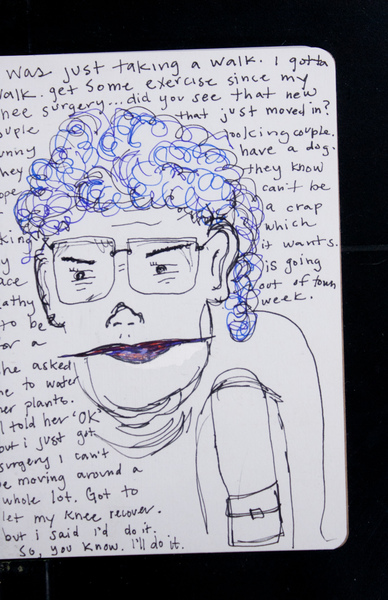 was just taking a walk. I gotta
walk. get some exercise since my
knee surgery...did you see that new
that just moved in?
looking couple.
have a dog.
they know
can't be
a crap
which
it wants.
is going
out of town
week.
to be
for a
she asked
me to water
her plants.
I told her 'OK'
but i just got
surgery I can't
be moving around a
whole lot. Got to
let my knee recover.
but i said i'd do it.
So, you know. I'll do it.